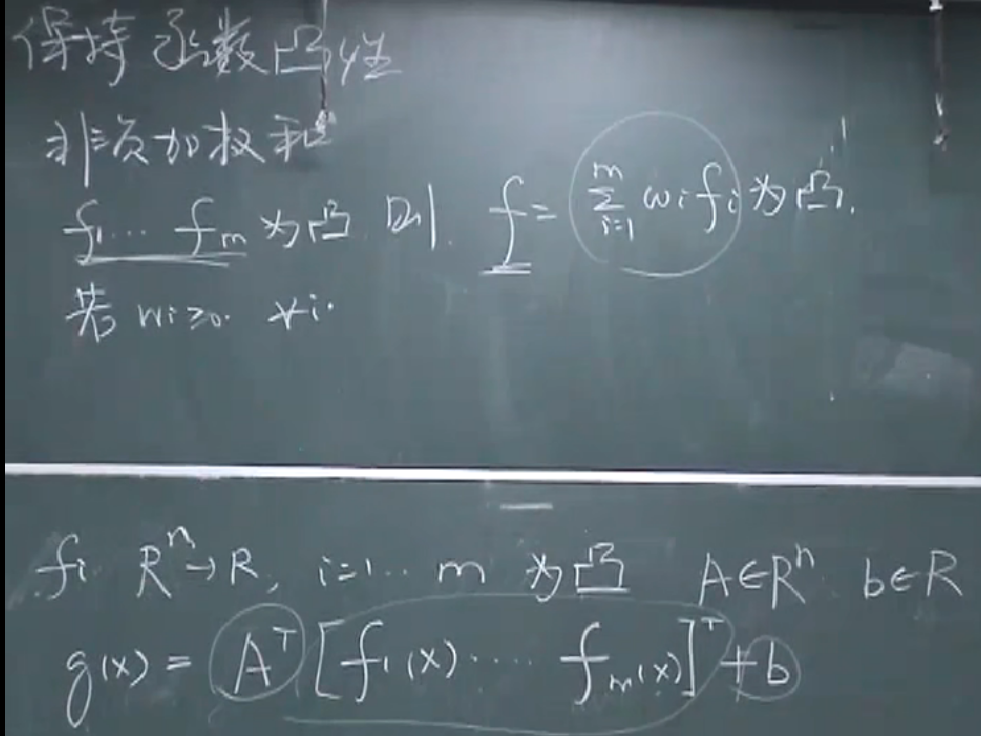 保持函数凸性
非负加权和
f₁... fₘ 为凸 则. f = ∑ᵢ₌₁ᵐ wᵢfᵢ 为凸.
若 wᵢ≥0. ∀i.
fᵢ Rⁿ→R, i=1... m 为凸 A∈Rⁿ b∈R
g(x) = Aᵀ[f₁(x)..... fₘ(x)]ᵀ+b